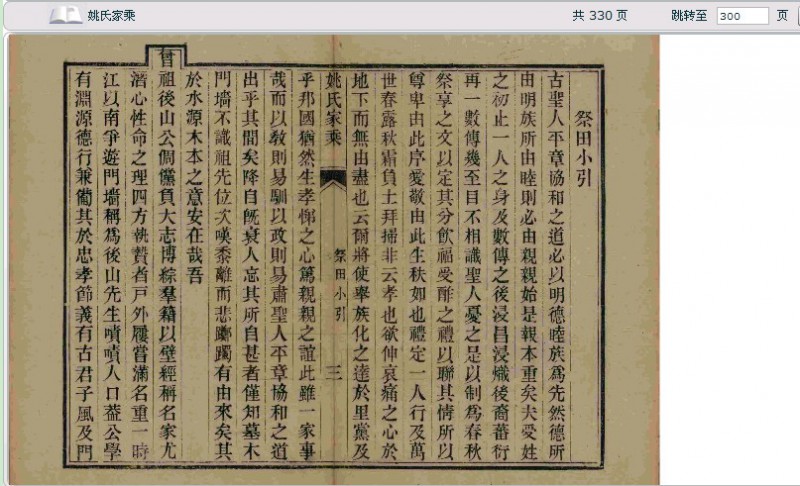 姚氏家乘
共 330 页
跳转至 300 页
祭田小引
古聖人平章協和之道必以明德睦族為先然德所
由明族所由睦則必由親親始是報本重矣夫受姓
之初止一人之身及數傳之後浸昌浸熾後裔蕃衍
再一數傳幾至目不相識聖人憂之是以制為春秋
祭享之文以定其分飲福受酢之禮以聯其情所以
尊卑由此序愛敬由此生秩如也禮定一人行及萬
世春露秋霜負土拜掃非云孝也欲伸哀痛之心於
地下而無由盡也云爾將使舉族化之達於里黨及
姚氏家乘
祭田小引
三
乎邦國猶然生孝悌之心篤親親之誼此雖一家事
哉而以教則易馴以政則易肅聖人平章協和之道
出乎其間矣降自旣衰人忘其所自甚者僅知墓木
門墻不識祖先位次嘆黍離而悲躑躅有由來矣其
於水源木本之意安在哉吾
曾
祖後山公倜儻負大志博綜羣籍以壁經稱名家尤
潛心性命之理四方執贄者戸外屨嘗滿名重一時
江以南爭遊門墻稱為後山先生嘖嘖人口葢公學
有淵源德行兼衢其於忠孝節義有古君子風及門